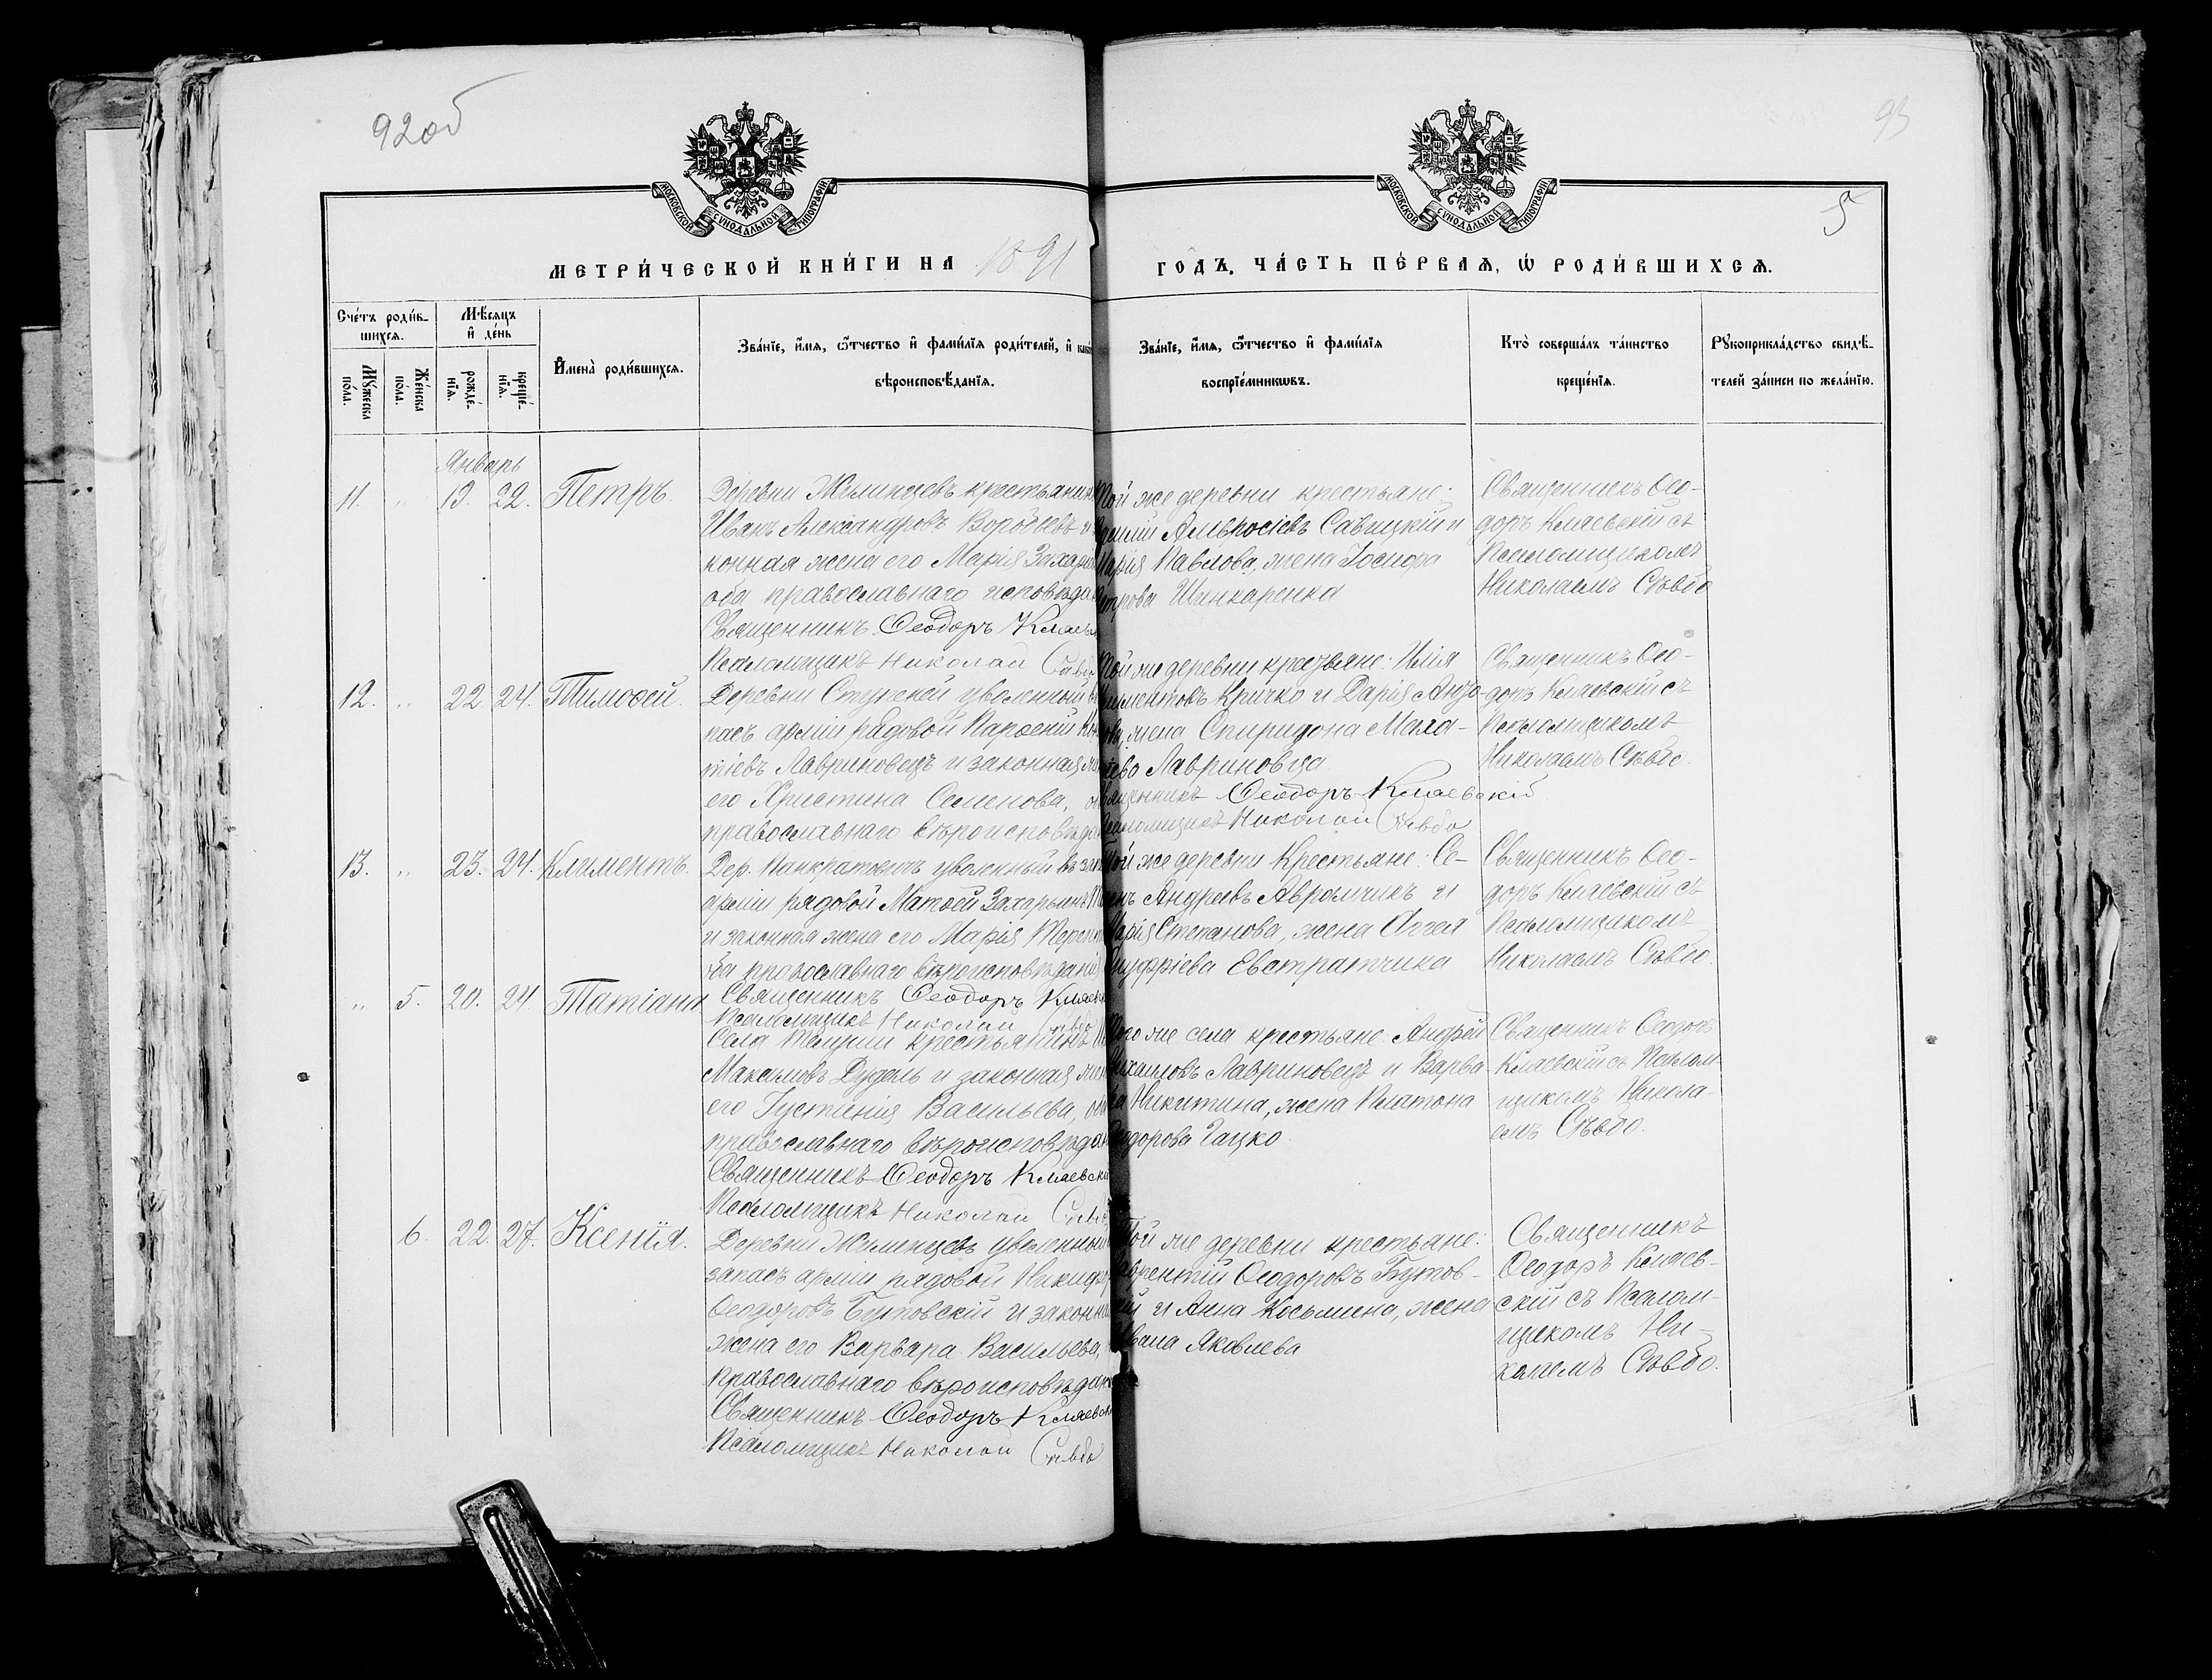 92об
93
5
МОСКОВСКОЙ СѴНОДАЛЬНОЙ ТИПОГРАФІИ
МОСКОВСКОЙ СѴНОДАЛЬНОЙ ТИПОГРАФІИ
МЕТРИ́ЧЕСКОЙ КНИ́ГИ НА 1891 ГОДЪ, ЧА́СТЬ ПЕ́РВАѦ, Ѡ҆ РОДИ́ВШИХСѦ.
Сче́тъ роди́в-
шихсѧ.
Мꙋ́жеска
по́ла.
Же́нска
по́ла.
Мѣ́сѧцъ
и҆ де́нь
рожде́-
нїѧ.
креще́-
нїѧ.
И҆мена̀ роди́вшихсѧ.
Зва́нїе, и҆́мѧ, ѻ҆́тчество и҆ фами́лїѧ роди́телей, и҆
вѣроисповѣ́данїѧ.
Зва́нїе, и҆́мѧ, ѻ҆́тчество и҆ фами́лїѧ
воспрїе́мникѡвъ.
Кто̀ соверша́лъ та́инство
креще́нїѧ.
Рꙋкоприкла́дство свидѣ́-
телей за́писи по жела́нїю.
Январь
11. " 19. 22. Петръ.
Деревни Жилинцевъ крестьянинъ
Иванъ Александровъ Воробьевъ и
конная жена его Марія Захар
оба православнаго исповѣда
Священникъ Ѳеодоръ Кляев
Псаломщикъ Николай Сѣвбо
Той же деревни крестьяне:
Амвросіевъ Савицкій и
Марія Павлова, жена Іосифа
Петрова Шинкаренка
Священникъ Ѳео-
доръ Кляевскій съ
Псаломщикомъ
Николаемъ Сѣвбо
12. " 22. 24. Тимоѳей.
Деревни уволенной въ
пасъ арміи рядовой Парѳеній
тіевъ Лавриновецъ и законная
его Христина Семенова, о
православнаго вѣроисповѣда
Той же деревни крестьяне: Илія
Климентовъ Кричко и Дарія Анто-
ова, жена Спиридона Мала-
хіева Лавриновца
Священникъ Ѳеодоръ Кляевскій
Псаломщикъ Николай Сѣвбо
Священникъ Ѳео-
доръ Кляевскій съ
Псаломщикомъ
Николаемъ Сѣвбо.
13. " 23. 24. Климентъ.
Дер. Панкратовичъ уволенный въ зап
арміи рядовой Матѳей Захарьинъ
и законная жена его Марія Терен
оба православнаго вѣроисповѣданія
Священникъ Ѳеодоръ Кляев
Псаломщикъ Николай Сѣвбо
Той же деревни Крестьяне: Се-
менъ Андреевъ Аврамчикъ и
Марія Степанова, жена Аггея
Онуфріева Евстратчика
Священникъ Ѳео-
доръ Кляевскій съ
Псаломщикомъ
Николаемъ Сѣвбо.
" 5. 20. 24 Татіана
Села крестьянинъ
Максимовъ Дудель и законная жен
его Іустинія Васильева, оба
православнаго вѣроисповѣдан
Священникъ Ѳеодоръ Кляевскі
Псаломщикъ Николай Сѣвбо
Того же села крестьяне: Андрей
Михаиловъ Лавриновецъ и Варва-
ра Никитина, жена Платона
Ѳеодорова Гацко.
Священникъ Ѳеодоръ
Кляевскій съ Псалом-
щикомъ Никола-
емъ Сѣвбо.
6. 22. 27. Ксенія.
Деревни Жилинцевъ уволенной
запасъ арміи рядовой Никифор
Ѳеодоровъ Бутовскій и законна
жена его Варвара Васильева,
православнаго вѣроисповѣдан
Священникъ Ѳеодоръ Кляевскі
Псаломщикъ Николай Сѣвбо
Той же деревни крестьяне:
Лаврентій Ѳеодоровъ Бутов-
скій и Анна Косьмина, жена
Ивана Яковлева
Священникъ
Ѳеодоръ Кляев-
скій съ Псалом-
щикомъ Ни-
колаемъ Сѣвбо.